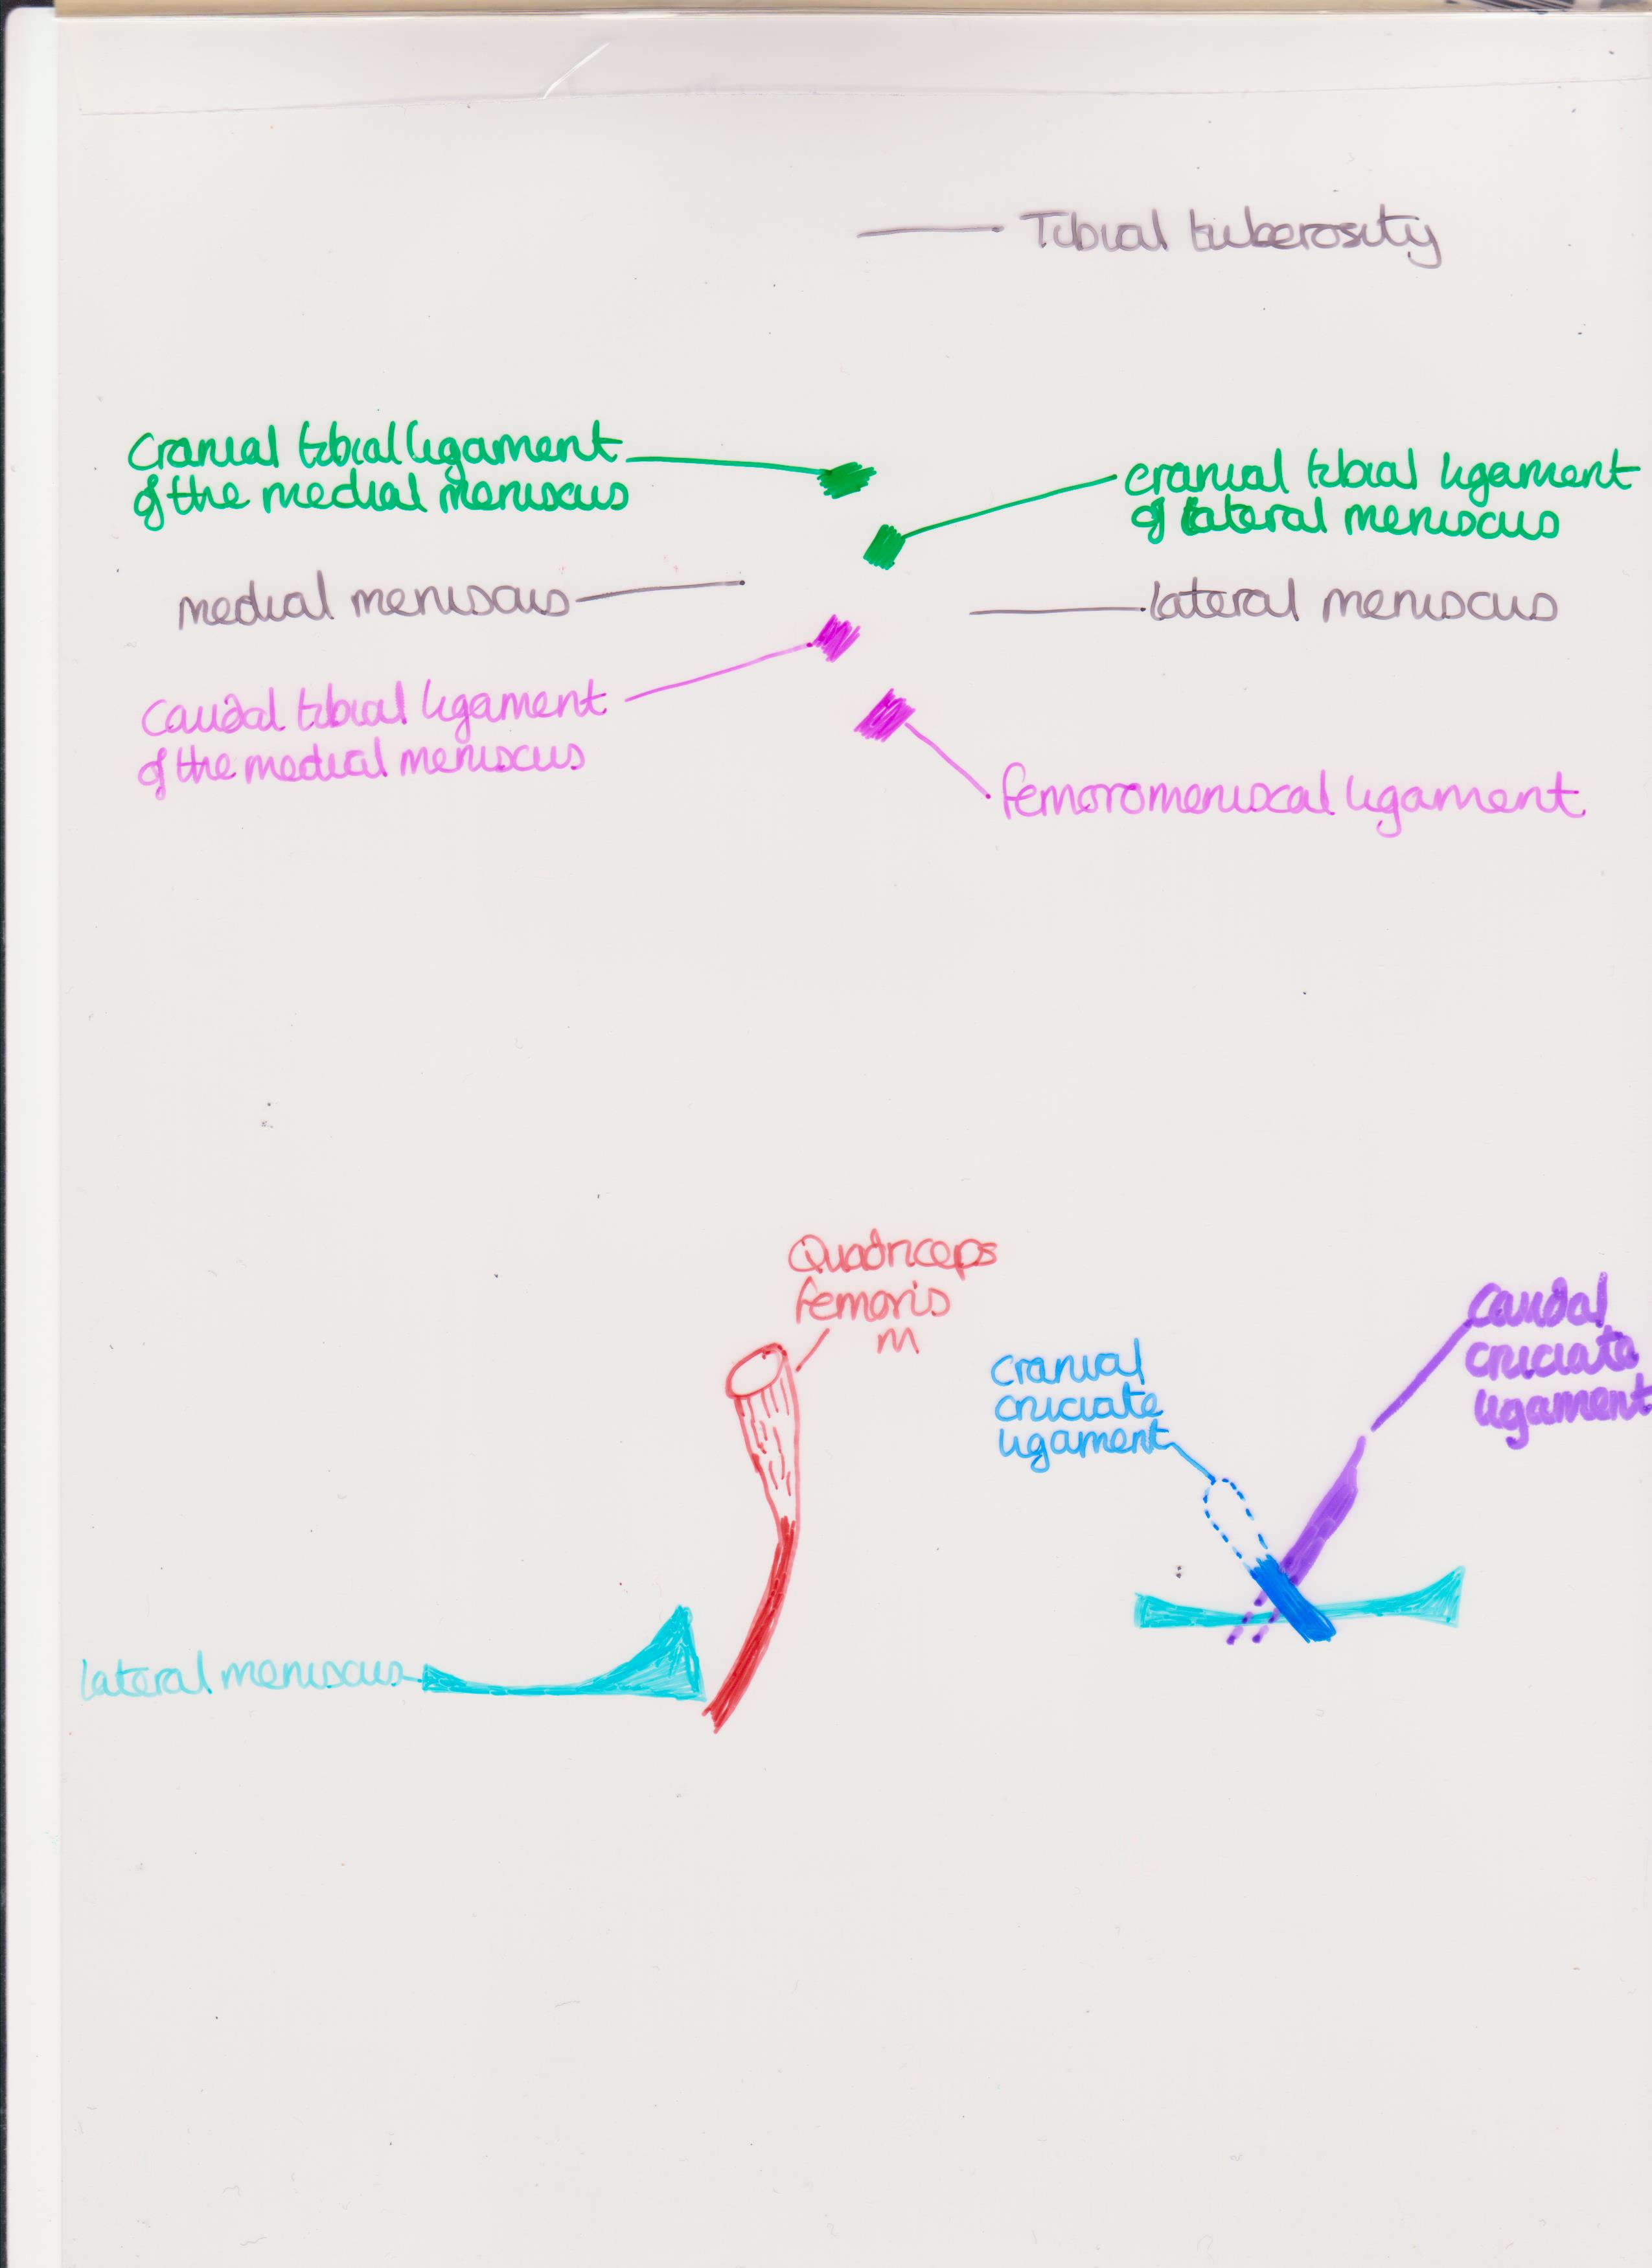 Tibial tuberosity
Cranial tibial ligament
of the medial meniscus
cranial tibial ligament
of lateral meniscus
medial meniscus
lateral meniscus
Caudal tibial ligament
of the medial meniscus
femoromeniscal ligament
Quadriceps
femoris
m
Cranial
cruciate
ligament
Caudal
cruciate
ligament
lateral meniscus